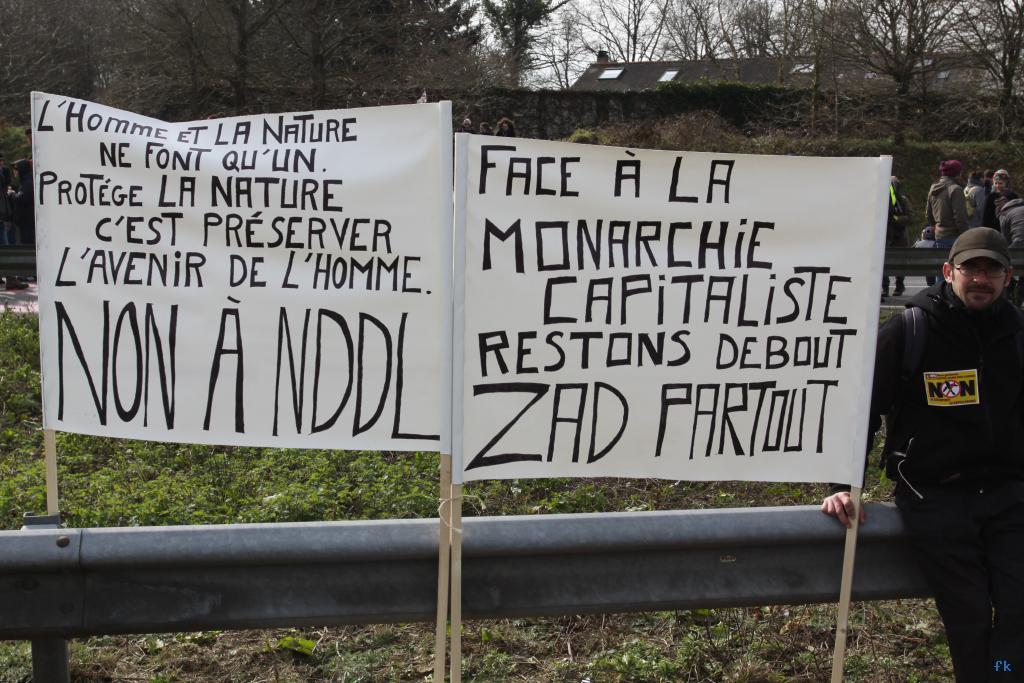 L'HOMME ET LA NATURE
NE FONT QU'UN.
PROTÉGE LA NATURE
C'EST PRÉSERVER
L'AVENIR DE L'HOMME.
NON À NDDL
FACE À LA
MONARCHiE
CAPiTALiSTE
RESTONS DEBOUT
ZAD PARTOUT
NON
fk